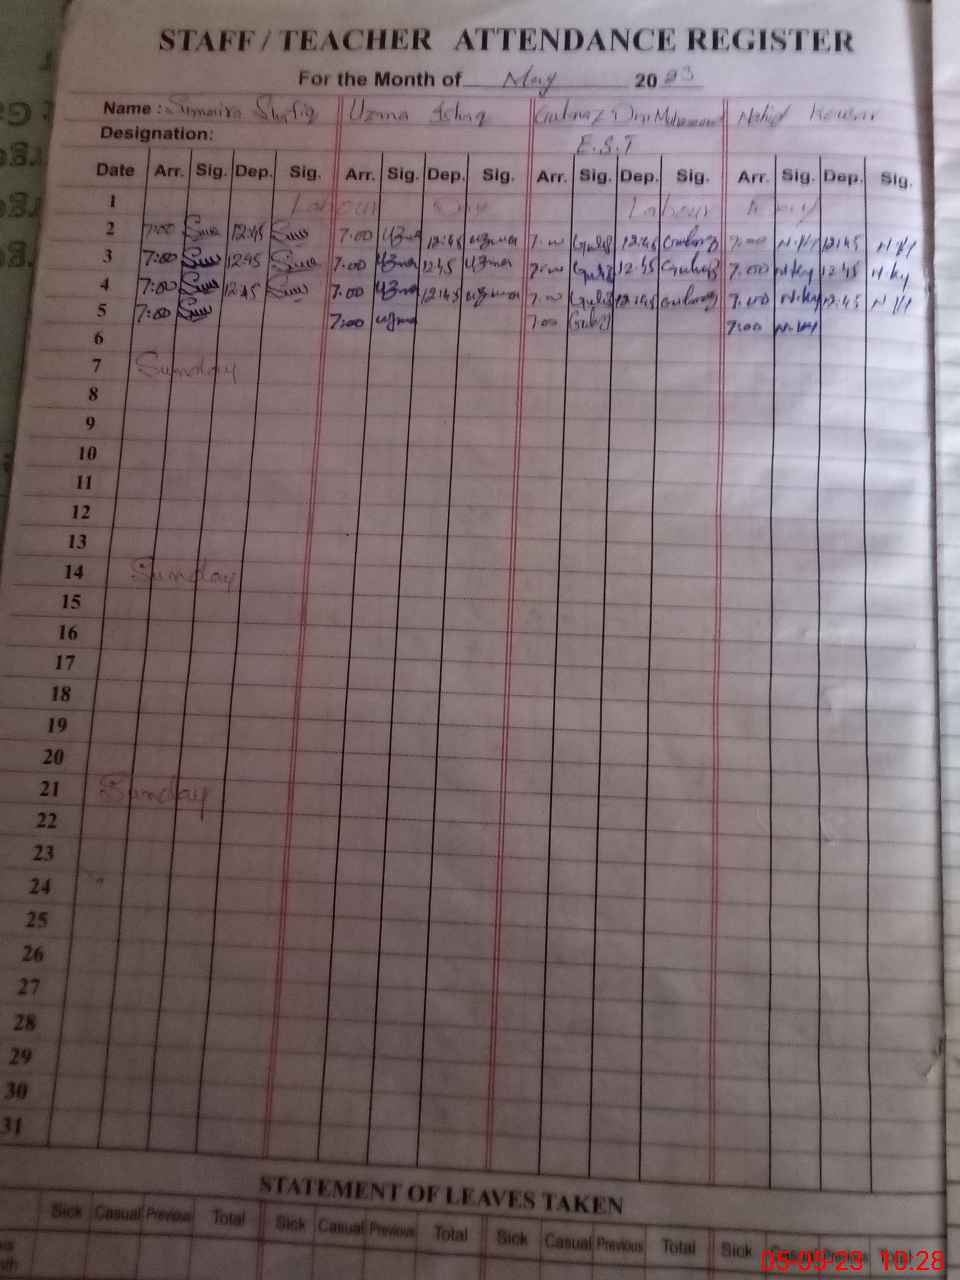 STAFF / TEACHER ATTENDANCE REGISTER
For the Month of May 2023
Name : Sumaira Shafiq Uzma Ishaq Gulnaz Din Muhammad Nahid Kousar
Designation: E.S.T
Date Arr. Sig. Dep. Sig. Arr. Sig. Dep. Sig. Arr. Sig. Dep. Sig. Arr. Sig. Dep. Sig.
1 Labour Day Labour Day
2 7:00 12:45 7:00 Uzma 12:45 uzma 7:00 Gulnaz 12:45 Gulnaz 7:00 N.Ky 12:45 N.Ky
3 7:00 12:45 7:00 Uzma 12:45 Uzma 7:00 12:45 Gulnaz 7:00 N.Ky 12:45 N.Ky
4 7:00 12:45 7:00 Uzma 12:45 uzma 7:00 12:45 Gulnaz 7:00 N.Ky 12:45 N.Ky
5 7:00 7:00 uzma 7:00 7:00 N.Ky
6
7 Sunday
8
9
10
11
12
13
14 Sunday
15
16
17
18
19
20
21 Sunday
22
23
24
25
26
27
28
29
30
31
STATEMENT OF LEAVES TAKEN
Sick Casual Previous Total Sick Casual Previous Total Sick Casual Previous Total Sick Casual Previous Total
05-05-23 10:28